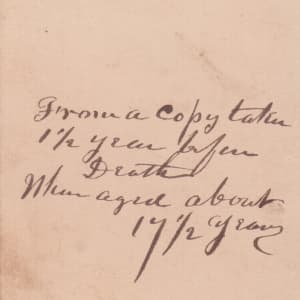 From a copy taken
1½ year before
Death
When aged about
17½ Years